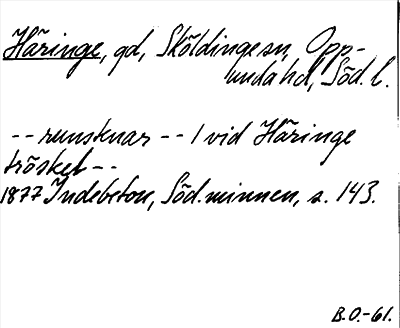 Häringe, gd, Sköldinge sn, Opp-
unda hd, Söd. l.
-- runstenar -- / vid Häringe
trösket --
1877 Indebetou, Söd. minnen, s. 143.
B.O.-61.